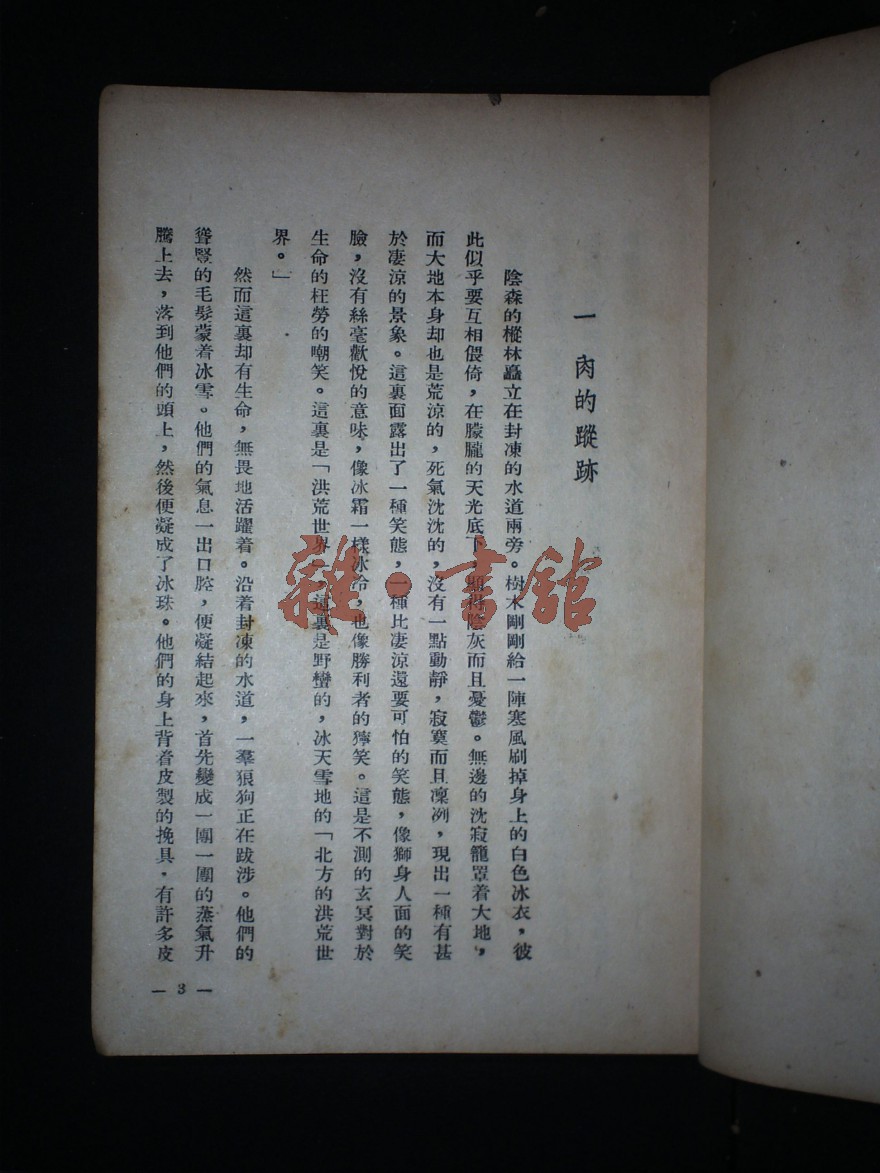 一 肉的蹤跡
陰森的樅林矗立在封凍的水道兩旁。樹木剛剛給一陣寒風刷掉身上的白色冰衣,彼
此似乎要互相偎倚,在朦朧的天光底下,顯得陰灰而且憂鬱。無邊的沈寂籠罩着大地,
而大地本身却也是荒涼的,死氣沈沈的,沒有一點動靜,寂寞而且凜冽,現出一種有甚
於凄涼的景象。這裏面露出了一種笑態,一種比凄涼還要可怕的笑態,像獅身人面的笑
臉,沒有絲毫歡悅的意味,像冰霜一樣冰冷,也像勝利者的獰笑。這是不測的玄冥對於
生命的枉勞的嘲笑。這裏是「洪荒世界」,這裏是野蠻的,冰天雪地的「北方的洪荒世
界。」
然而這裏却有生命,無畏地活躍着。沿着封凍的水道,一羣狼狗正在跋涉。他們的
聳豎的毛髮蒙着冰雪。他們的氣息一出口腔,便凝結起來,首先變成一團一團的蒸氣升
騰上去,落到他們的頭上,然後便凝成了冰珠。他們的身上背着皮製的挽具,有許多皮
— 3 —
雜·書館